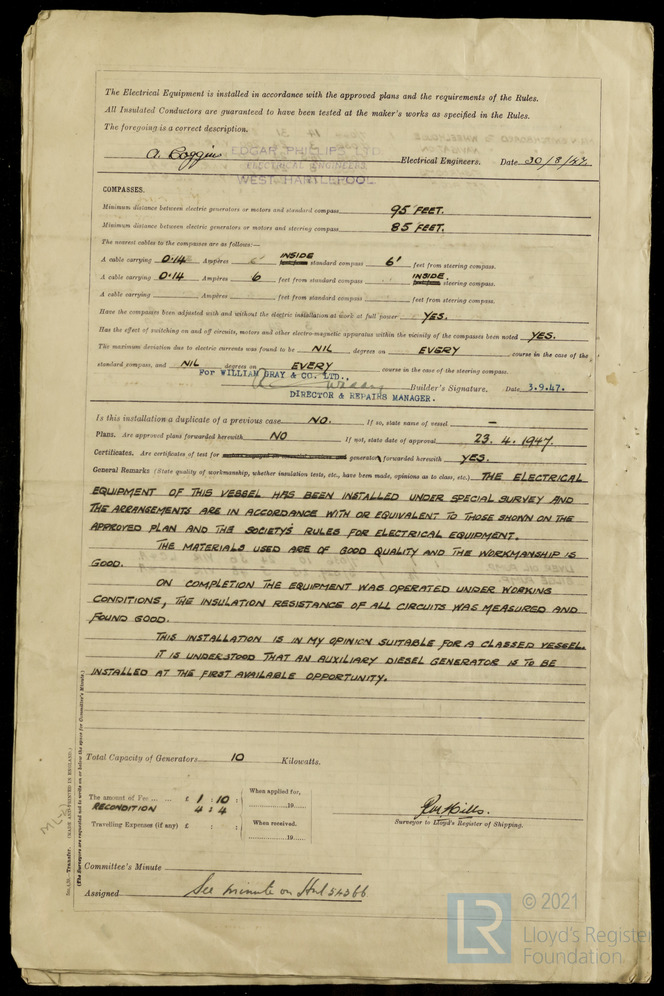 The Electrical Equipment is installed in accordance with the approved plans and the requirements of the Rules.
All Insulated Conductors are guaranteed to have been tested at the maker's works as specified in the Rules.
The foregoing is a correct description.
EDGAR PHILLIPS LTD.
ELECTRICAL ENGINEERS,
WEST HARTLEPOOL.
A. Coggins Electrical Engineers. Date 30/8/47
COMPASSES.
Minimum distance between electric generators or motors and standard compass 95 FEET.
Minimum distance between electric generators or motors and steering compass 85 FEET.
The nearest cables to the compasses are as follows:—
A cable carrying 0.14 Ampères 6' INSIDE standard compass 6' feet from steering compass.
A cable carrying 0.14 Ampères 6 feet from standard compass INSIDE steering compass.
A cable carrying Ampères feet from standard compass feet from steering compass.
Have the compasses been adjusted with and without the electric installation at work at full power YES.
Has the effect of switching on and off circuits, motors and other electro-magnetic apparatus within the vicinity of the compasses been noted YES.
The maximum deviation due to electric currents was found to be NIL degrees on EVERY course in the case of the
standard compass, and NIL degrees on EVERY course in the case of the steering compass.
For WILLIAM GRAY & CO. LTD.,
Builder's Signature. Date 3.9.47.
DIRECTOR & REPAIRS MANAGER.
Is this installation a duplicate of a previous case NO. If so, state name of vessel —
Plans. Are approved plans forwarded herewith NO If not, state date of approval 23.4.1947.
Certificates. Are certificates of test for generator forwarded herewith YES.
General Remarks (State quality of workmanship, whether insulation tests, etc., have been made, opinions as to class, etc.) THE ELECTRICAL
EQUIPMENT OF THIS VESSEL HAS BEEN INSTALLED UNDER SPECIAL SURVEY AND
THE ARRANGEMENTS ARE IN ACCORDANCE WITH OR EQUIVALENT TO THOSE SHOWN ON THE
APPROVED PLAN AND THE SOCIETY'S RULES FOR ELECTRICAL EQUIPMENT.
THE MATERIALS USED ARE OF GOOD QUALITY AND THE WORKMANSHIP IS
GOOD.
ON COMPLETION THE EQUIPMENT WAS OPERATED UNDER WORKING
CONDITIONS, THE INSULATION RESISTANCE OF ALL CIRCUITS WAS MEASURED AND
FOUND GOOD.
THIS INSTALLATION IS IN MY OPINION SUITABLE FOR A CLASSED VESSEL.
IT IS UNDERSTOOD THAT AN AUXILIARY DIESEL GENERATOR IS TO BE
INSTALLED AT THE FIRST AVAILABLE OPPORTUNITY.
Total Capacity of Generators 10 Kilowatts.
The amount of Fee ... ... £ 1 : 10 :
RECONDITION 4 : 4
Travelling Expenses (if any) £ : :
When applied for,
19
When received.
19
Surveyor to Lloyd's Register of Shipping.
Committee's Minute
Assigned See minute on Hul 54366
Transfer. (MADE AND PRINTED IN ENGLAND.)
(The Surveyors are requested not to write on or below the space for Committee's Minute.)
LR
© 2021
Lloyd's Register
Foundation.